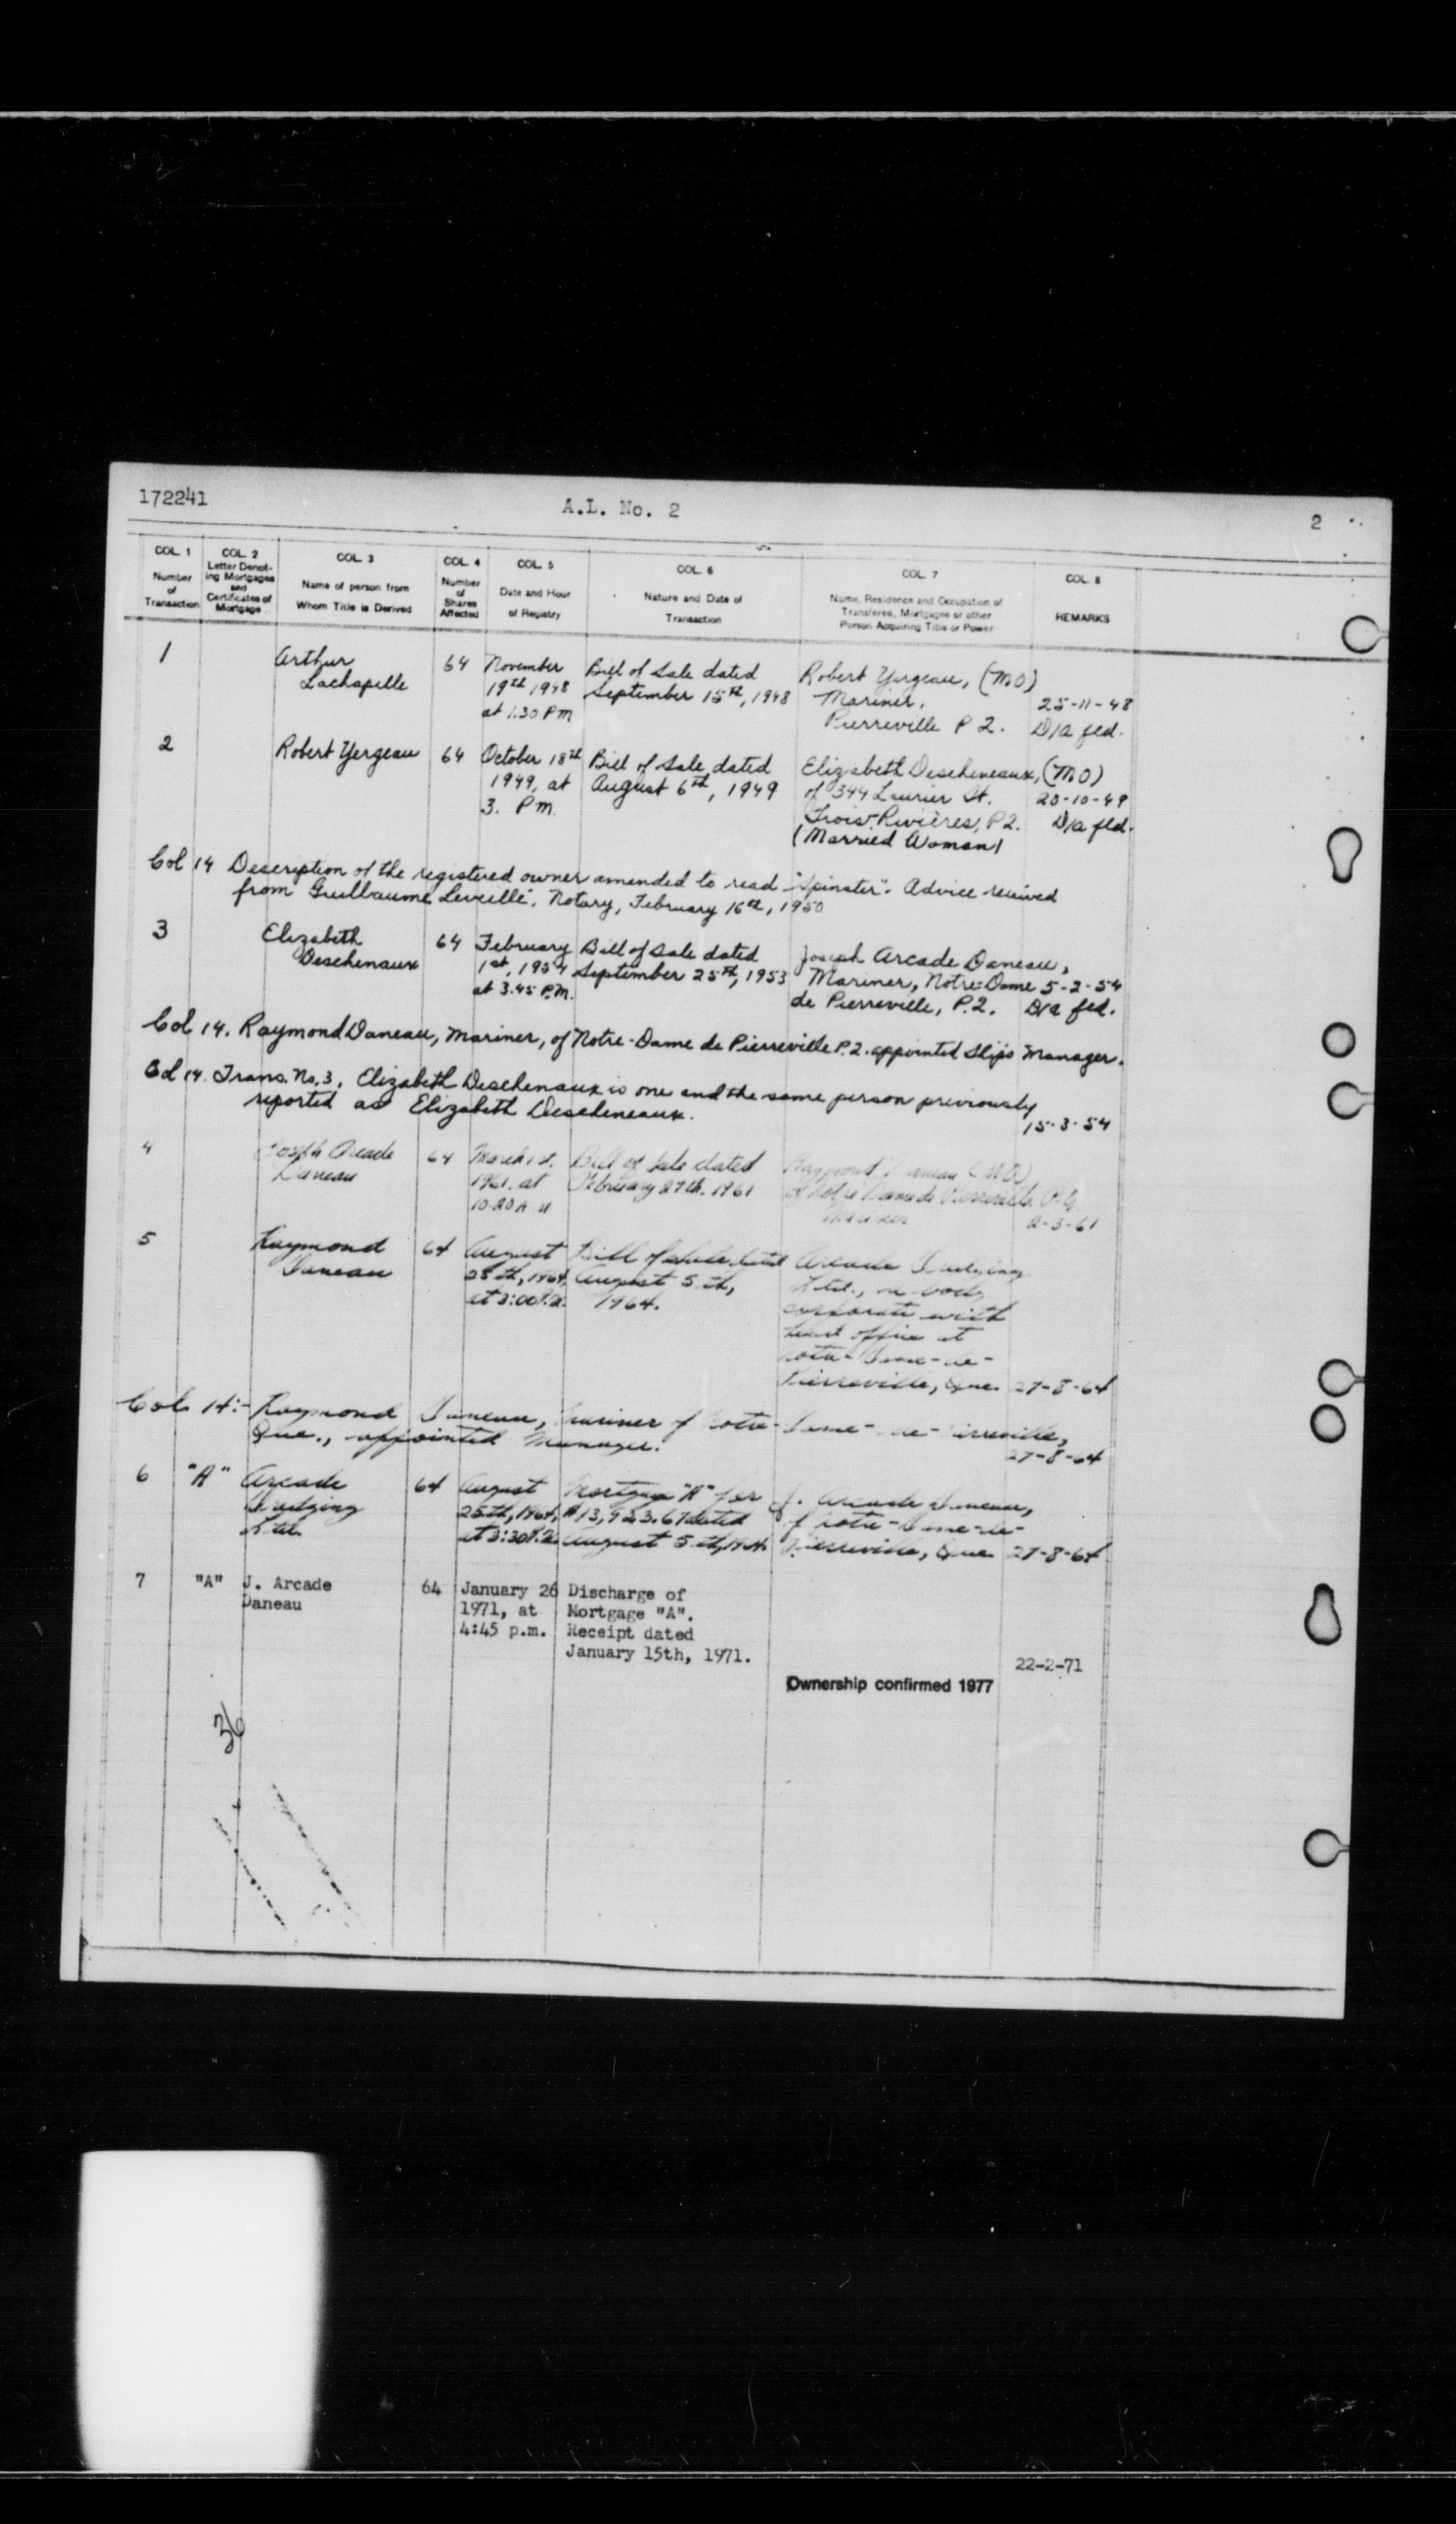 172241 A.L. No. 2 2
COL. 1 Number of Transaction
COL. 2 Letter Denoting Mortgages and Certificates of Mortgage
COL. 3 Name of person from Whom Title is Derived
COL. 4 Number of Shares Affected
COL. 5 Date and Hour of Registry
COL. 6 Nature and Date of Transaction
COL. 7 Name, Residence and Occupation of Transferee, Mortgagee or other Person Acquiring Title or Power
COL. 8 REMARKS
1 Arthur 64 November Bill of Sale dated Robert Yergeau, (M.O)
Lachapelle 19th 1948 September 15th, 1948 Mariner, 25-11-48
at 1.30 PM Pierreville P Q. D/a fld.
2 Robert Yergeau 64 October 18th Bill of Sale dated Elizabeth Descheneaux, (M.O)
1949, at August 6th, 1949 of 344 Laurier St. 20-10-49
3. P.M. Trois-Rivières, P.Q. D/a fld.
(Married Woman)
Col 14 Description of the registered owner amended to read "Spinster". Advice received
from Guillaume Leveillé, Notary, February 16th, 1950
3 Elizabeth 64 February Bill of Sale dated Joseph Arcade Daneau,
Deschenaux 1st, 1954 September 25th, 1953 Mariner, Notre-Dame 5-2-54
at 3.45 P.M. de Pierreville, P.Q. D/a fld.
Col 14. Raymond Daneau, Mariner, of Notre-Dame de Pierreville P.Q. appointed Ship's Manager.
Col 14. Trans. No. 3. Elizabeth Deschenaux is one and the same person previously
reported as Elizabeth Descheneaux. 15-3-54
4 Joseph Arcade 64 March 1st. Bill of Sale dated Raymond Daneau (M.O)
Daneau 1961. at February 27th. 1961 of Notre Dame de Pierreville P.Q.
10.20 A.M Mariner 2-3-61
5 Raymond 64 August Bill of Sale dated Arcade Dredging
Daneau 25th, 1964, August 5th, Ltd., a body
at 3:00 P.M. 1964. corporate with
head office at
Notre-Dame-de-
Pierreville, Que. 27-8-64
Col. 14:- Raymond Daneau, Mariner of Notre-Dame-de-Pierreville,
Que., appointed Manager. 27-8-64
6 "A" Arcade 64 August Mortgage "A" for J. Arcade Daneau,
Dredging 25th, 1964, $13,923.67 dated of Notre-Dame-de-
Ltd. at 3:30 P.M. August 5th, 1964. Pierreville, Que. 27-8-64
7 "A" J. Arcade 64 January 26 Discharge of
Daneau 1971, at Mortgage "A".
4:45 p.m. Receipt dated
January 15th, 1971.
22-2-71
Ownership confirmed 1977
36